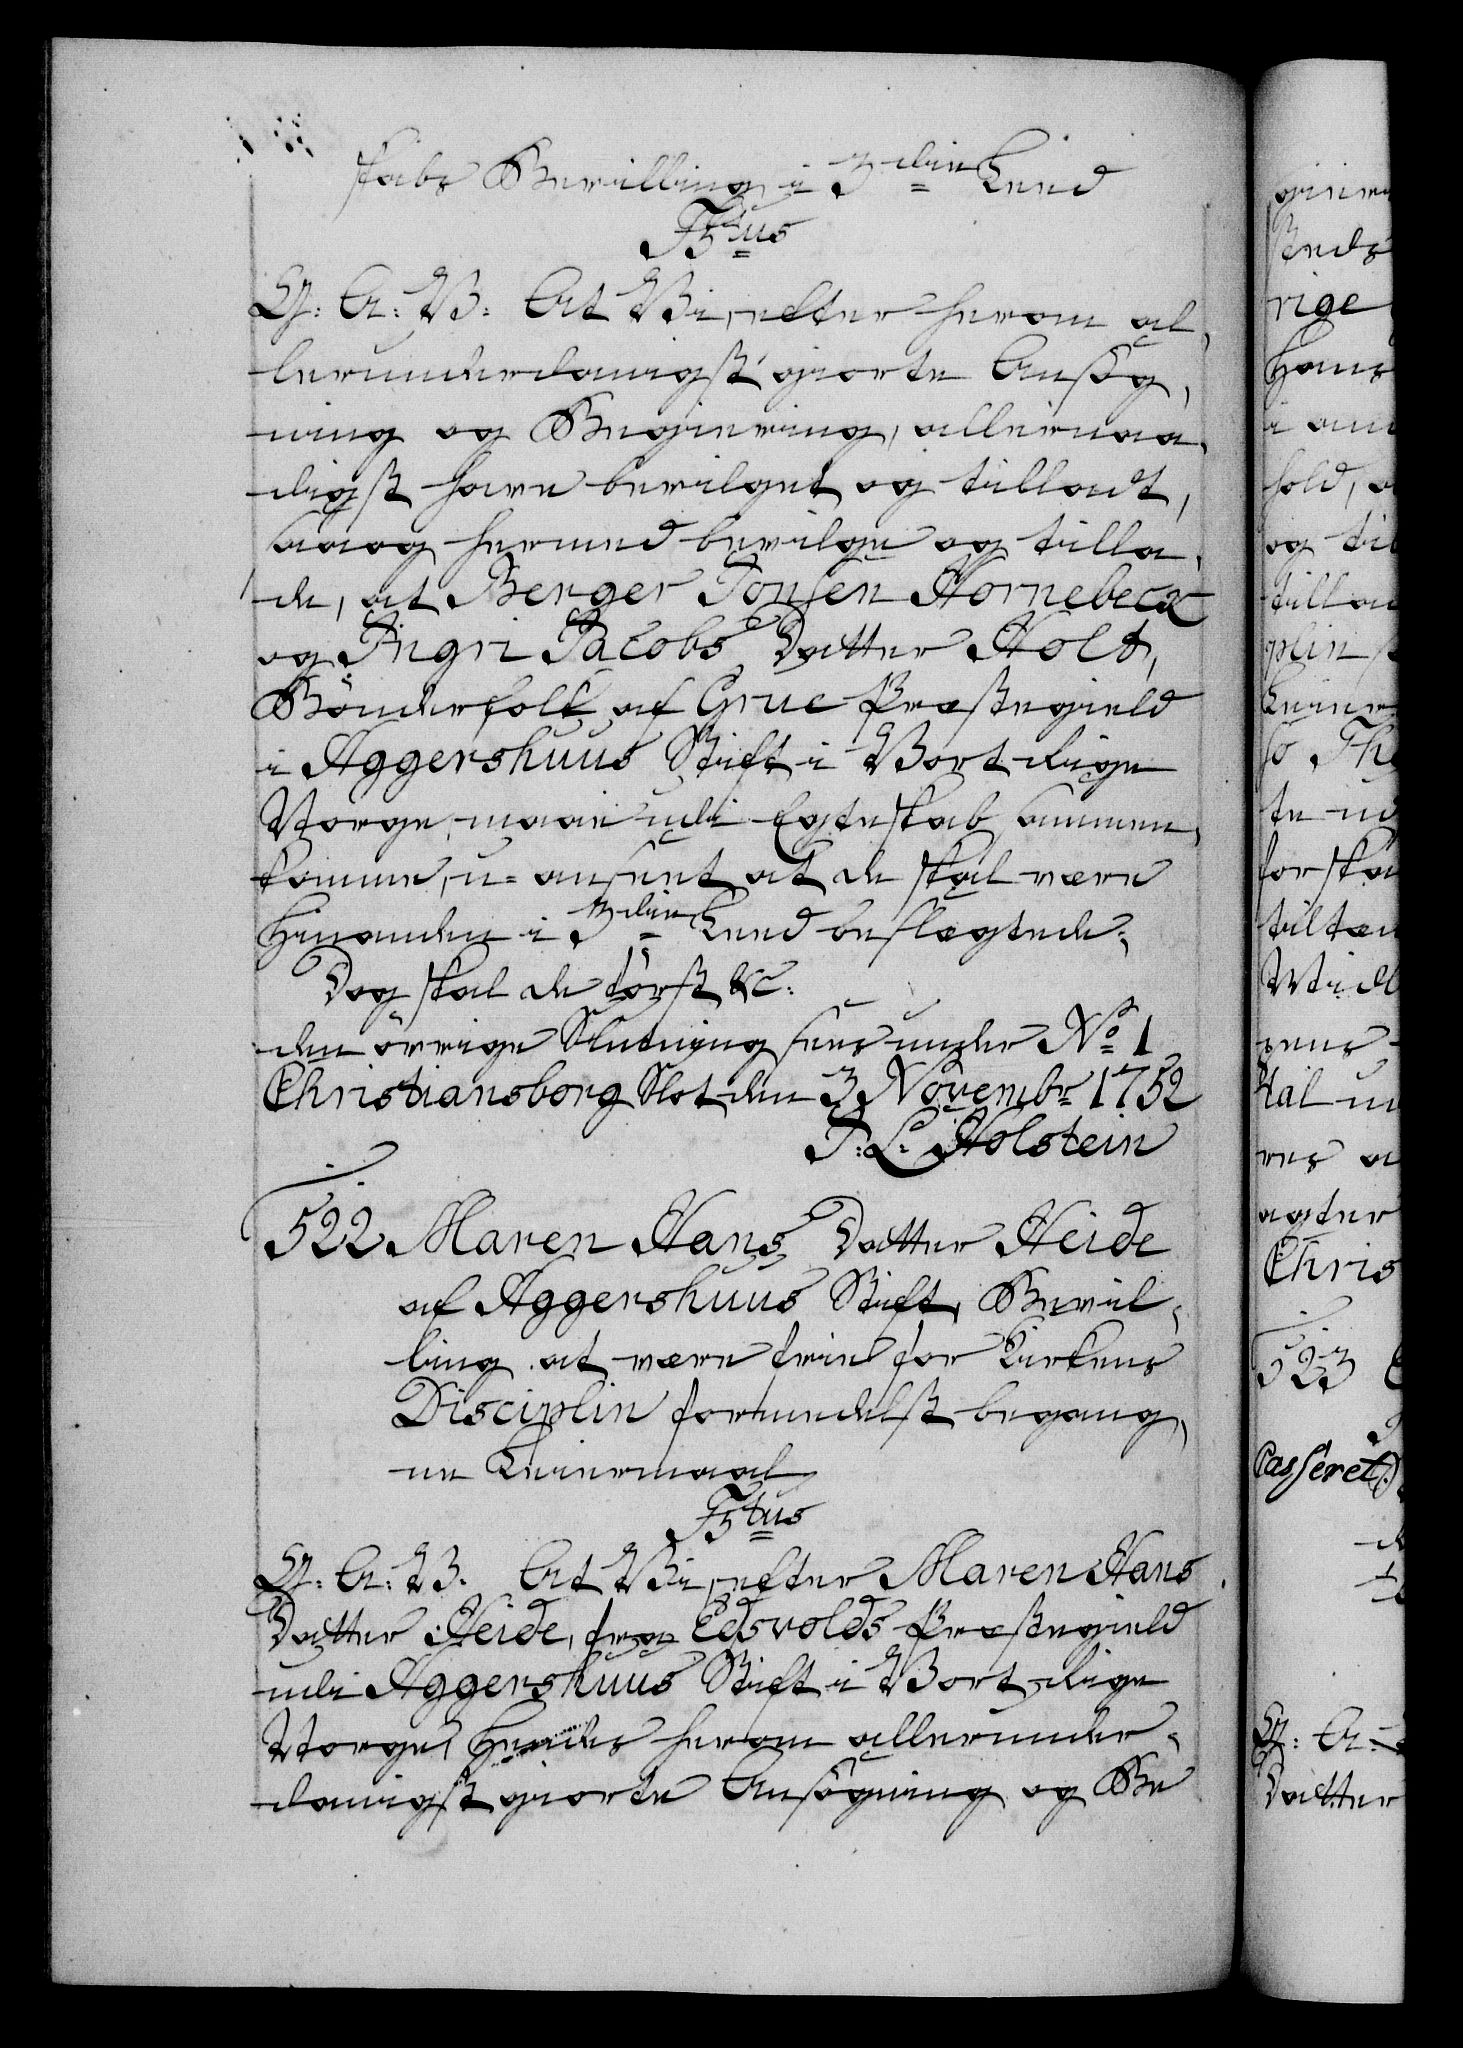 skabs Bevilling i 3die Leed
F5tus
G: A: V: At Vi, efter herom al-
lerunderdanigst giorte Ansøg-
ning og Begiering, allernaa-
digst have bevilget og tilladt,
saa og hermed bevilge og tilla-
de, at Berger Jonsen Hornebeck
og Ingri Jacobs Datter Holt,
Bönderfolk af Grue Præstegield
i Aggershuus Stift i Vort Rige
Norge, maae udi Egteskab sammen-
komme, u-anseet at de skal være
hinanden i 3die Leed beslægtede;
Dog skal de først &c:
den övrige Slutning sees under No 1
Christiansborg Slot den 3 Novembr 1752
J: L: Holstein
522. Maren Hans Datter Heide
af Aggershuus Stift, Bevil-
ling at være frie for Kirkens
Disciplin formedelst begang-
ne Leiermaal
F5tus
G: A: V. At Vi, efter Maren Hans
Datter Heide, fra Edsvolds Præstegield
udi Aggershuus Stift i Vort Rige
Norge, hendes herom allerunder-
danigst giorte Ansögning og Be
rige
hans
hold,
og til
plin
for skal
res
Chris
523
Passeret
G: A:
Datter